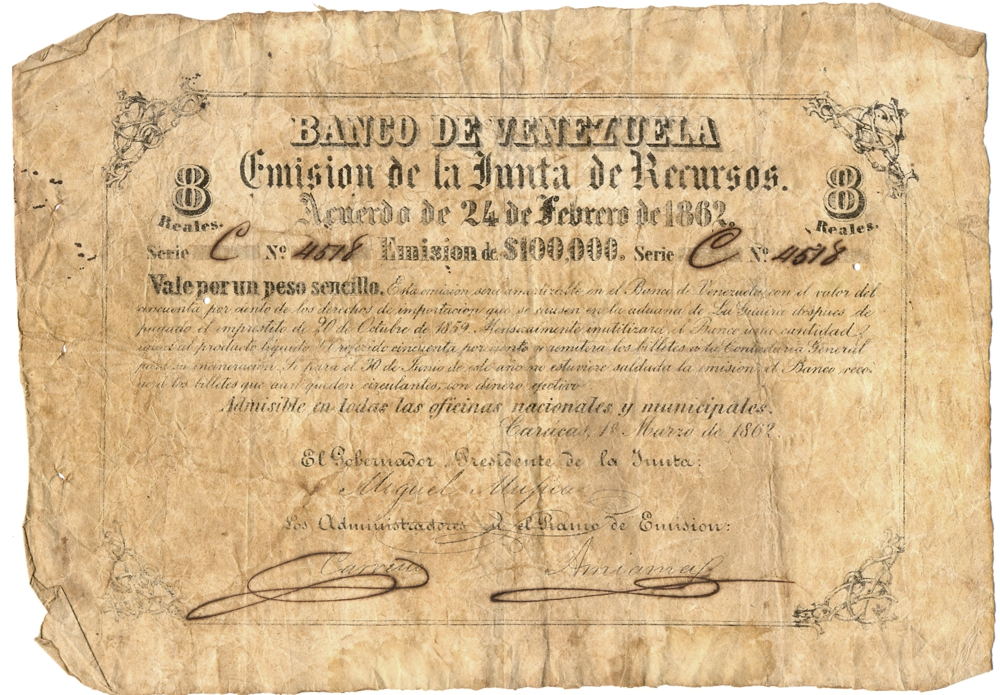 BANCO DE VENEZUELA
Emision de la Junta de Recursos.
Acuerdo de 24 de Febrero de 1862.
8 Reales.
8 Reales.
Serie C Nº 4518 Emision de $100,000. Serie C Nº 4518
Vale por un peso sencillo. Esta emision será amortizable en el Banco de Venezuela, con el valor del
cincuenta por ciento de los derechos de importacion que se causen en la aduana de La Guaira despues de
pagado el emprestito de 20 de Octubre de 1859. Mensualmente inutilizará el Banco igual cantidad
igual al producto líquido del referido cincuenta por ciento y remitirá los billetes a la Contaduría General
para su incineracion. Si para el 30 de Junio de este año no estuviere saldada la emision, el Banco reco-
los billetes que aun queden circulantes, con dinero efectivo
Admisible en todas las oficinas nacionales y municipales.
Caracas, 1º Marzo de 1862
El Gobernador Presidente de la Junta:
Miguel
Los Administradores en el Ramo de Emision: